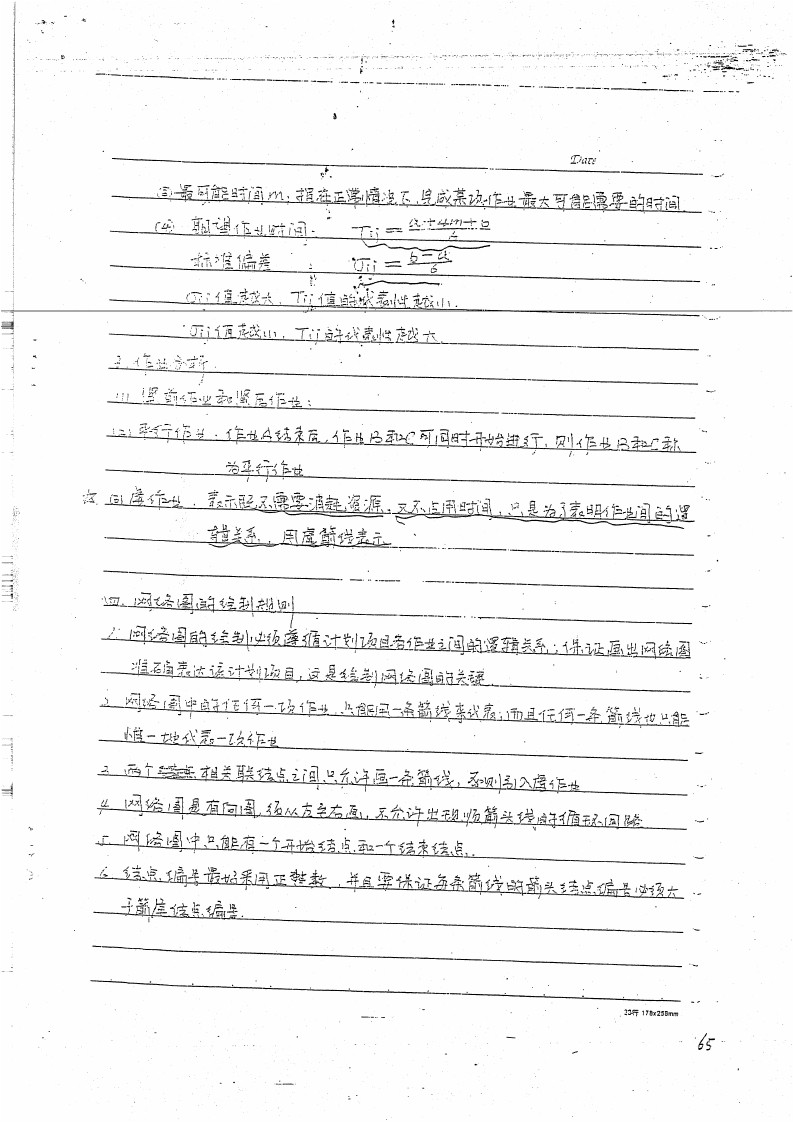 Date
(三)最可能时间m:指在正常情况下,完成某项作业最大可能需要的时间
(四) 期望作业时间: Tij = a+4m+b/6
标准偏差: σij = b-a/6
σij值越大,Tij值的代表性越小.
σij值越小,Tij的代表性越大
3.作业分析.
(1) 紧前作业和紧后作业:
(二)平行作业.作业A结束后,作业B和C可同时开始进行,则作业B和C称
为平行作业
(三)虚作业.表示既不需要消耗资源,又不占用时间,只是为了表明作业间的逻
辑关系,用虚箭线表示
四.网络图的绘制规则
1.网络图的绘制必须遵循计划项目各作业之间的逻辑关系;保证画出网络图
准确表达该计划项目,这是绘制网络图的关键
2.网络图中的任何一项作业,只能用一条箭线来代表;而且任何一条箭线也只能
惟一地代表一项作业
3.两个相关联结点之间只允许画一条箭线,否则引入虚作业
4.网络图是有向图,须从左至右画,不允许出现顺箭头线的循环回路
5.网络图中只能有一个开始结点和一个结束结点.
6.结点编号最好采用正整数,并且要保证每条箭线的箭头结点编号必须大
于箭尾结点编号.
23行 178x258mm
65